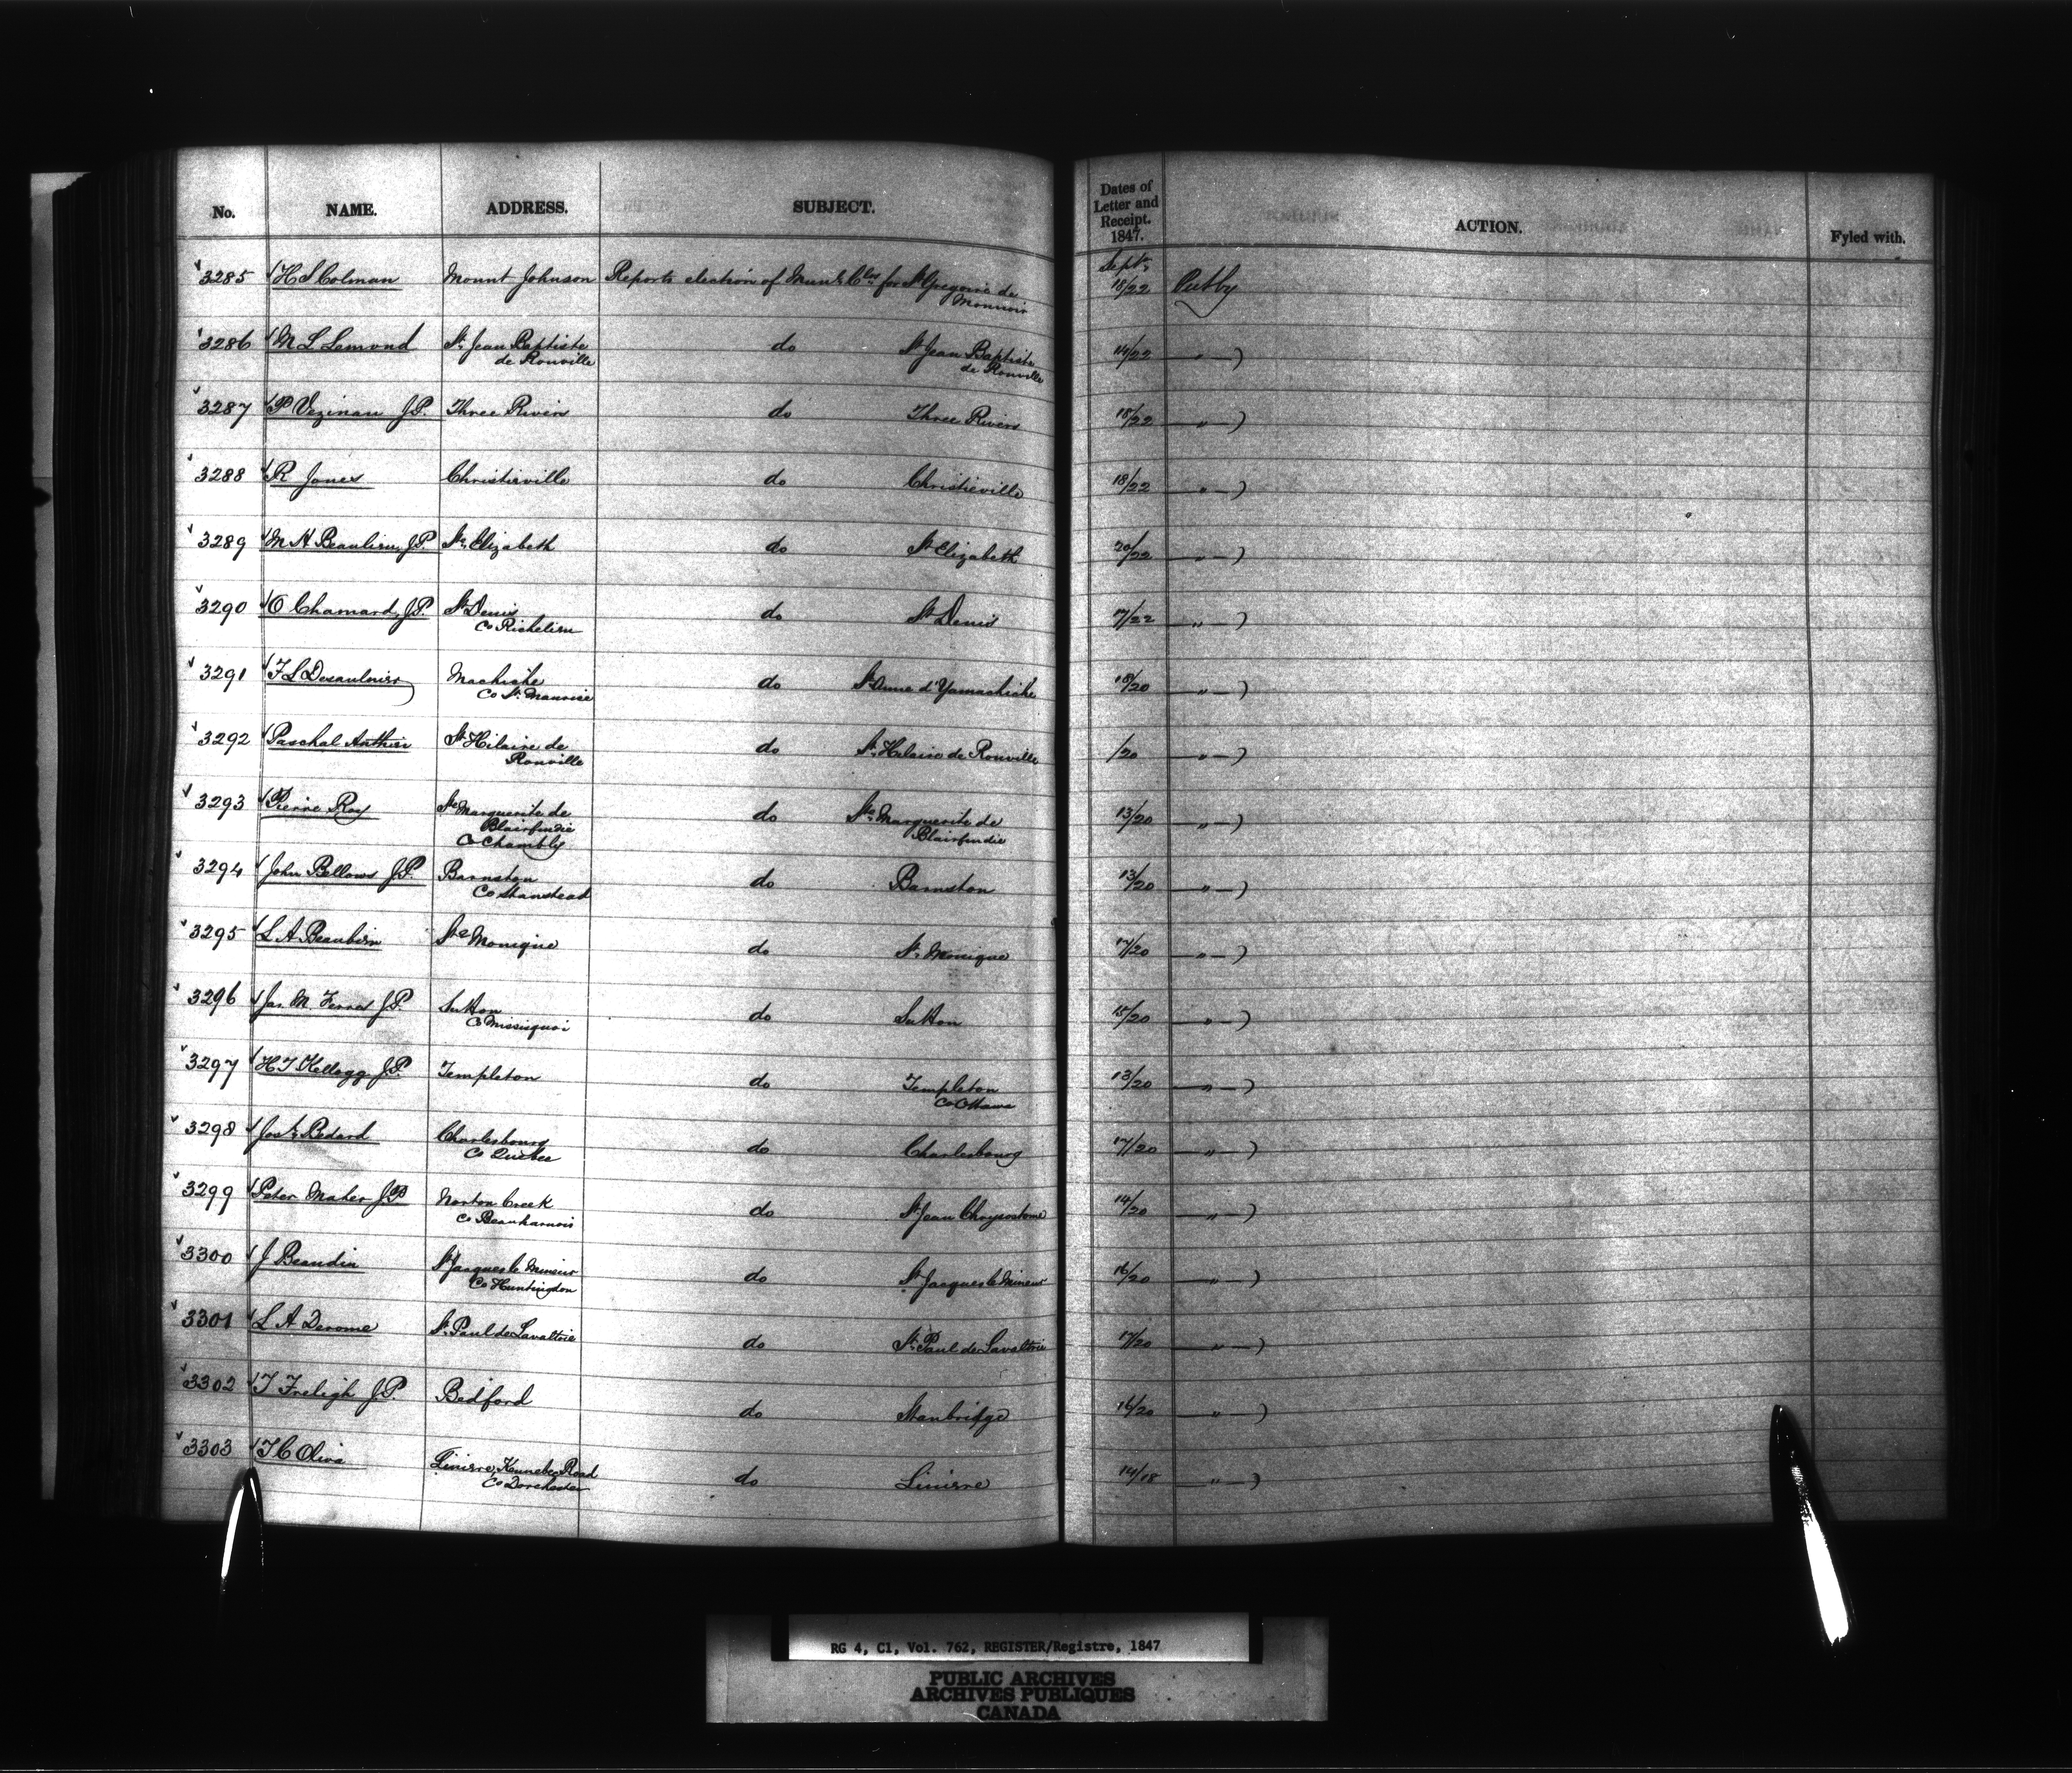 No. NAME. ADDRESS. SUBJECT. Dates of Letter and Receipt. 1847. ACTION. Fyled with.
3285 H S Colman Mount Johnson Reports election of Munl Clrs for St Gregoire de Monnoir Septr 18/22 Put by
3286 M L Lemond St Jean Baptiste de Rouville do St Jean Baptiste de Rouville 14/22 " )
3287 P Vezinau J.P. Three Rivers do Three Rivers 18/22 " )
3288 R Jones Christieville do Christieville 18/22 " )
3289 M H Beaulieu, J.P. St Elizabeth do St Elizabeth 20/22 " )
3290 O Chamard, J.P. St Denis Co Richelieu do St Denis 17/22 " )
3291 F L Desaulnier Machiche Co St Maurice do St Anne d'Yamachiche 18/20 " )
3292 Paschal Authier St Hilaire de Rouville do St Hilaire de Rouville /20 " )
3293 Pierre Roy Ste Marguerite de Blairfindie Co Chambly do Ste Marguerite de Blairfindie 13/20 " )
3294 John Bellows J.P. Barnston Co Stanstead do Barnston 13/20 " )
3295 L A Beaubien Ste Monique do St Monique 17/20 " )
3296 Jas M. Ferres J.P. Sutton Co Missisquoi do Sutton 15/20 " )
3297 H T Kellogg J.P. Templeton do Templeton Co Ottawa 13/20 " )
3298 Josh Bedard Charlesbourg Co Quebec do Charlesbourg 17/20 " )
3299 Peter Maher J.P. Norton Creek Co Beauharnois do St Jean Chrysostome 14/20 " )
3300 J Beaudin St Jacques le Mineur Co Huntingdon do St Jacques le Mineur 16/20 " )
3301 L A Derome St Paul de Lavaltrie do St Paul de Lavaltrie 17/20 " )
3302 T Freligh J.P. Bedford do Stanbridge 16/20 " )
3303 T C Oliva Liniere, Kennebec Road Co Dorchester do Liniere 14/18 " )
RG 4, C1, Vol. 762, REGISTER/Registre, 1847
PUBLIC ARCHIVES
ARCHIVES PUBLIQUES
CANADA